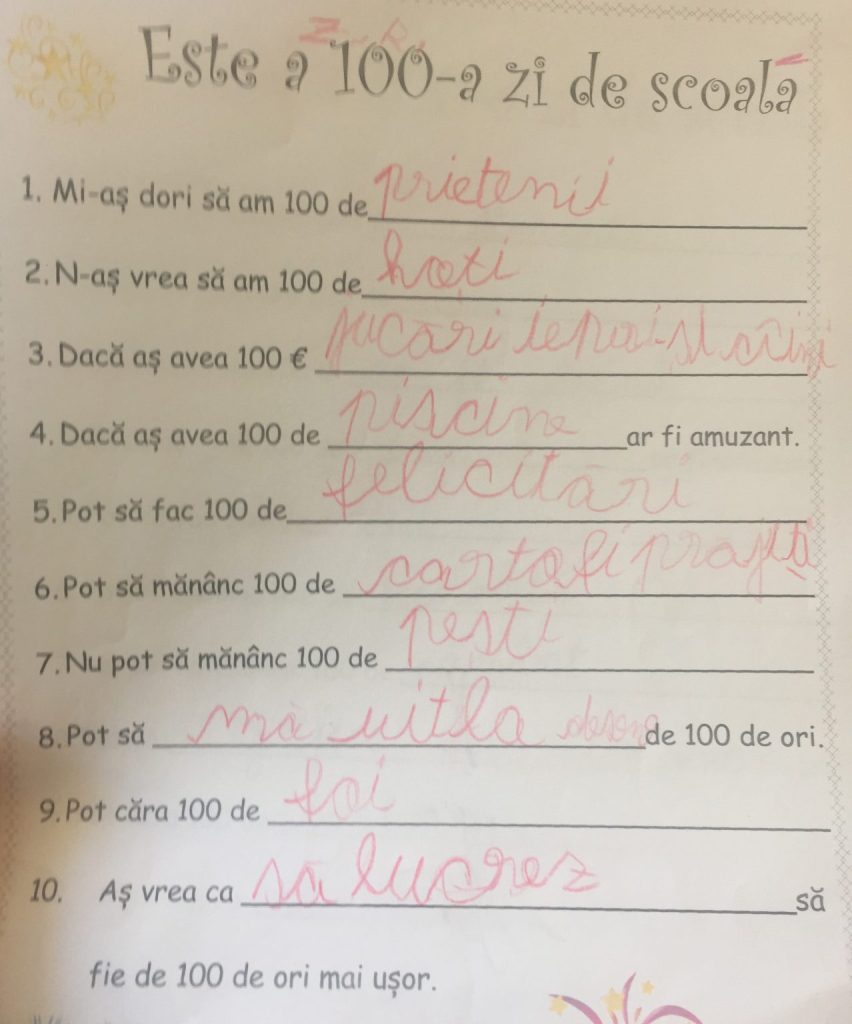 Z R
Este a 100-a zi de scoala
1. Mi-aş dori să am 100 de prietenii
2. N-aş vrea să am 100 de hoți
3. Dacă aş avea 100 € jucări iepuri și cîini
4. Dacă aş avea 100 de piscine ar fi amuzant.
5. Pot să fac 100 de felicitări
6. Pot să mănânc 100 de cartofi prajiți
7. Nu pot să mănânc 100 de pești
8. Pot să mă uit la desene de 100 de ori.
9. Pot căra 100 de foi
10. Aş vrea ca să lucrez să
fie de 100 de ori mai uşor.